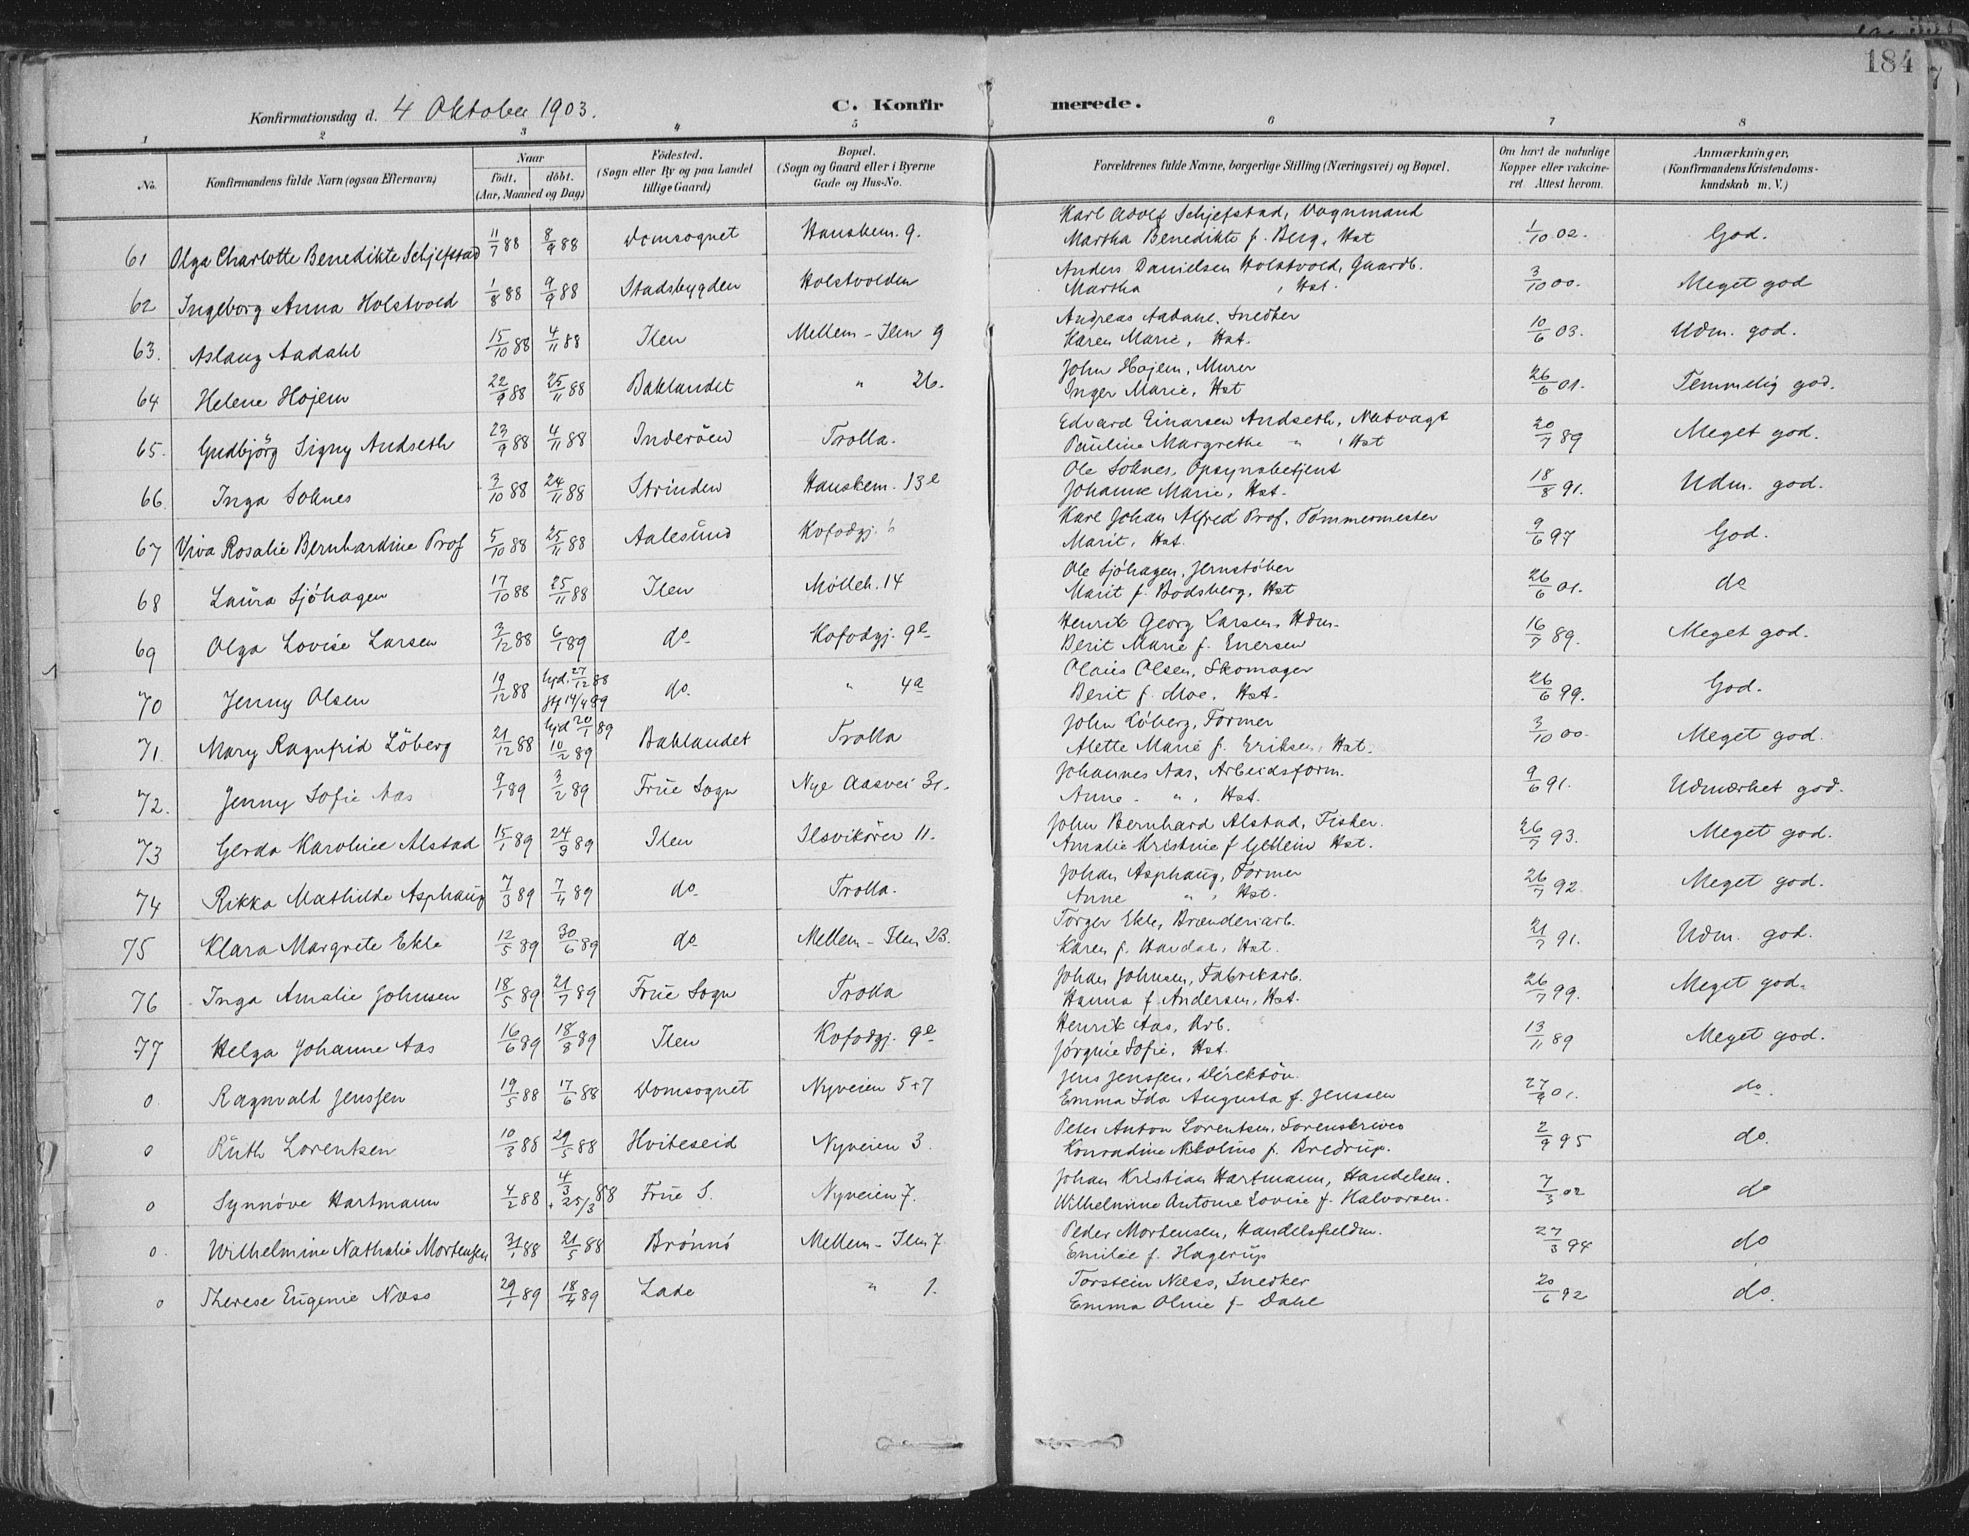 184
Konfirmationsdag d. 4 Oktober 1903.
C. Konfirmerede.
1 2 3 4 5 6 7 8
No. Konfirmandens fulde Navn (ogsaa Efternavn) Naar født. døbt. (Aar, Maaned og Dag) Fødested. (Sogn eller By og paa Landet tillige Gaard) Bopæl. (Sogn og Gaard eller i Byerne Gade og Hus-No. Forældrenes fulde Navne, borgerlige Stilling (Næringsvei) og Bopæl. Om havt de naturlige Kopper eller vakcineret. Attest herom. Anmærkninger. (Konfirmandens Kristendomskundskab m. V.)
61 Olga Charlotte Benedikte Schjefstad 11/7 88 8/9 88 Domsognet Hanskem. 9. Karl Adolf Schjefstad, Vognmand
Martha Benedikte f. Berg, Hst 1/10 02. God.
62 Ingeborg Anna Holstvold 1/8 88 9/9 88 Stadsbygden Holstvolden Anders Danielsen Holstvold, Gaardb.
Martha , Hst. 3/10 00. Meget god
63. Aslaug Aadahl 15/10 88 4/11 88 Ilen Mellem-Ilen 9 Andreas Aadahl, Snedker
Karen Marie, Hst. 10/6 03. Udm. god.
64 Helene Hojem 22/9 88 25/11 88 Baklandet " 26. John Hojem, Murer
Inger Marie, Hst 26/6 01. Temmelig god.
65. Gudbjörg Signy Andseth 23/9 88 4/11 88 Inderöen Trolla. Edvard Einarsen Andseth, Natvagt
Pauline Margrethe " , Hst 20/7 89 Meget god.
66. Inga Soknes 3/10 88 24/11 88 Strinden Hanskem. 13e Ole Soknes, Opsynsbetjent
Johanne Marie, Hst. 18/8 91. Udm. god.
67 Viva Rosalie Bernhardine Prof 5/10 88 25/11 88 Aalesund Kofodgj. 6 Karl Johan Alfred Prof, Tømmermester
Marit, Hst. 9/6 97 God.
68 Laura Sjöhagen 17/10 88 25/11 88 Ilen Mölleb. 14 Ole Sjöhagen, Jernstøber
Marit f. Bodsberg, Hst 26/6 01. do
69 Olga Lovise Larsen 3/12 88 6/1 89 do. Kofodgj. 9e Henrik Georg Larsen, Hdm.
Berit Marie f. Enersen 16/7 89. Meget god.
70 Jenny Olsen 19/12 88 hjd. 27/12 88 do. " 4a Olaus Olsen, Skomager
14/4 89 Berit f. Moe, Hst. 26/6 99. God.
71. Mary Ragnfrid Löberg 21/12 88 hjd 20/1 89 10/2 89 Baklandet Trolla John Löberg, Former
Alette Marie f. Eriksen, Hst. 3/10 00. Meget god.
72. Jenny Sofie Aas 9/1 89 3/2 89 Frue Sogn Nye Aasvei 31. Johannes Aas, Arbeidsform.
Anne. " , Hst. 9/6 91. Udmærket god.
73 Gerda Karoline Alstad 15/1 89 24/3 89 Ilen Ilsvikören 11. John Bernhard Alstad, Fisker.
Amalie Kristine f Hst. 26/7 93. Meget god.
74 Rikka Mathilde Asphaug 7/3 89 7/4 89 do. Trolla. Johan Asphaug, Former
Anne " , Hst. 26/7 92. Meget god.
75 Klara Margrete Ekle 12/5 89 30/6 89 do Mellem-Ilen 23. Torger Ekle, Brænderiarb.
Karen f. Hst. 21/7 91. Udm. god.
76 Inga Amalie Johnsen 18/5 89 21/7 89 Frue Sogn Trolla Johan Johnsen, Fabrikarb.
Hanna f. Andersen, Hst. 26/7 99. Meget god.
77 Helga Johanne Aas 16/6 89 18/8 89 Ilen Kofodgj. 9e Henrik Aas, Arb.
Jørgine Sofie, Hst. 13/11 89 Meget god.
0. Ragnvald Jenssen 19/5 88 17/6 88 Domsognet Nyveien 5+7 Jens Jenssen, Direktör.
Emma Ida Augusta f. Jenssen 27/9 01. do.
0 Ruth Lorentsen 10/3 88 29/5 88 Hviteseid Nyveien 3. Peter Anton Lorentsen, Sorenskriver
Konradine Nikoline f. Bredrup. 2/9 95 do.
0 Synnöve Hartmann 4/2 88 4/3 + 25/3 88 Frue S. Nyveien 7. Johan Kristian Hartmann, Handelsm.
Wilhelmine Antonie Lovise f. Halvorsen. 7/3 02 do
0. Wilhelmine Nathalie Mortensen 31/1 88 21/5 88 Brönnö Mellem-Ilen 7. Peder Mortensen, Handelsfuldm.
Emilie f. Hagerup 27/3 94 do
0 Therese Eugenie Næss 29/1 89 18/4 89 Lade " 1. Torstein Næss, Snedker
Emma Oline f. Dahl 20/6 92 do.